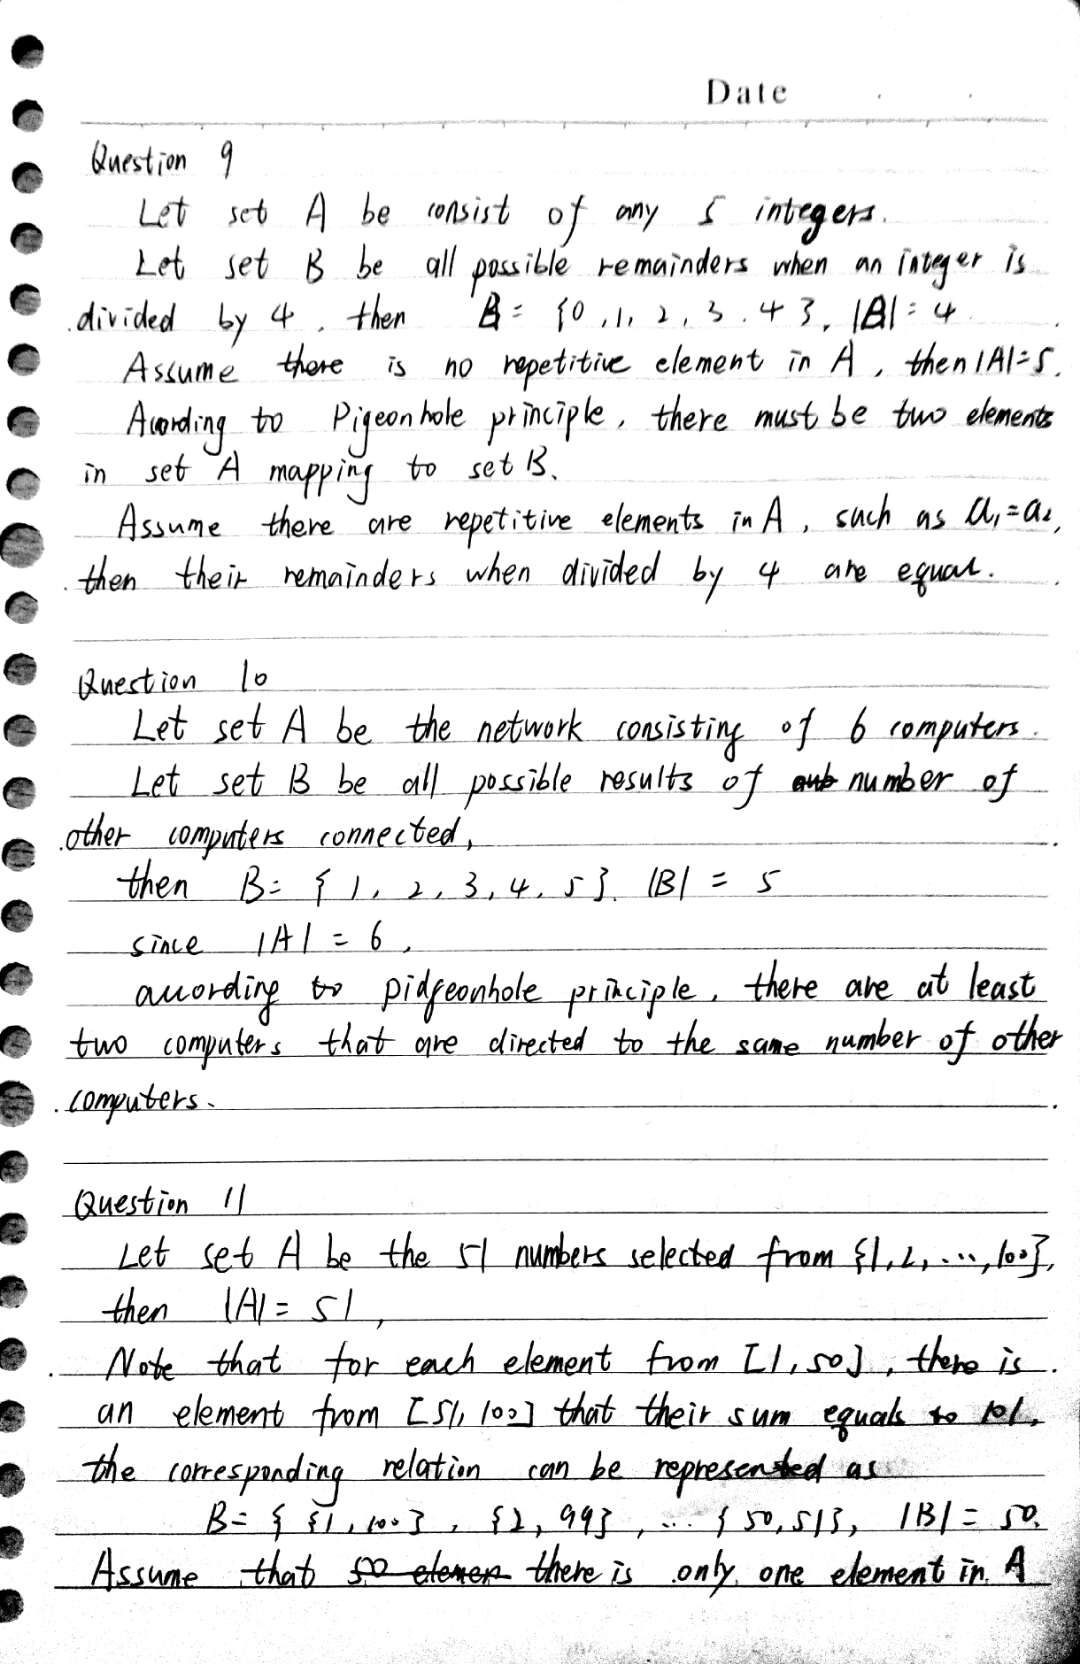 Date
Question 9
Let set A be consist of any 5 integers.
Let set B be all possible remainders when an integer is
divided by 4, then B = {0, 1, 2, 3. 4}, |B| = 4
Assume there is no repetitive element in A, then |A|=5.
Acording to Pigeonhole principle, there must be two elements
in set A mapping to set B.
Assume there are repetitive elements in A, such as a₁=a₂,
then their remainders when divided by 4 are equal.
Question 10
Let set A be the network consisting of 6 computers.
Let set B be all possible results of number of
other computers connected,
then B = {1, 2, 3, 4, 5}. |B| = 5
since |A| = 6,
according to pidgeonhole principle, there are at least
two computers that are directed to the same number of other
computers.
Question 11
Let set A be the 51 numbers selected from {1, 2, ..., 100},
then |A| = 51,
Note that for each element from [1, 50], there is
an element from [51, 100] that their sum equals to 101,
the corresponding relation can be represented as
B = { {1, 100}, {2, 99}, ... {50, 51}, |B| = 50.
Assume that 50 elemen there is only one element in A